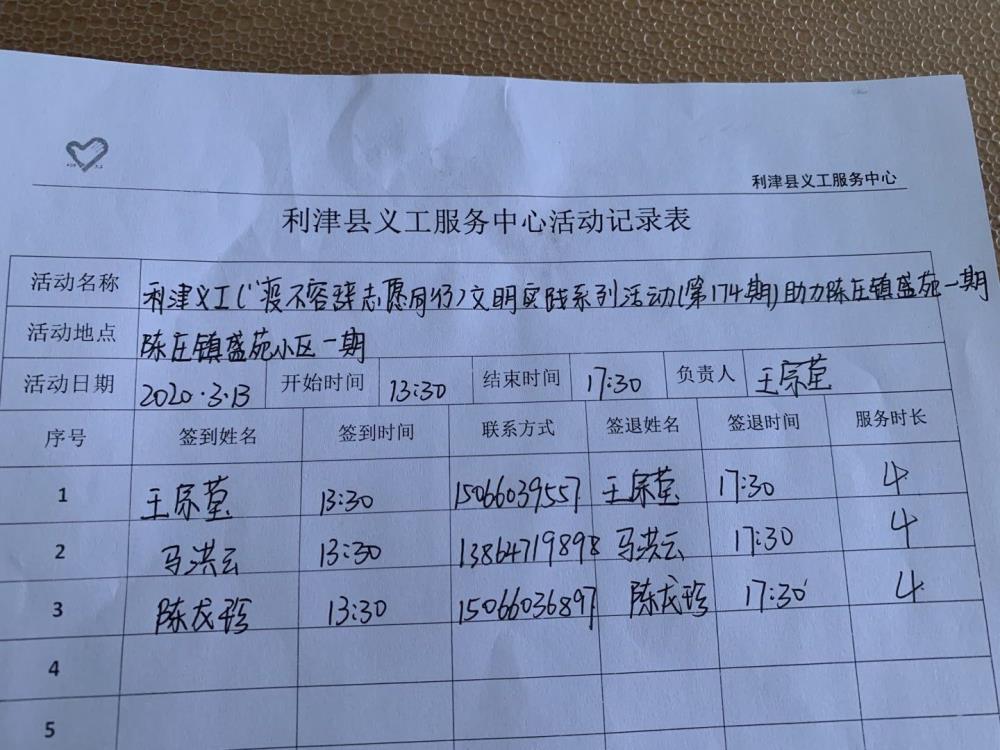 利津县义工服务中心
利津县义工服务中心活动记录表
活动名称 利津义工(“疫不容辞志愿同行)文明实践系列活动(第174期)助力陈庄镇盛苑一期
活动地点 陈庄镇盛苑小区一期
活动日期 2020.3.13 开始时间 13:30 结束时间 17:30 负责人 王宗莹
序号 签到姓名 签到时间 联系方式 签退姓名 签退时间 服务时长
1 王宗莹 13:30 15066039557 王宗莹 17:30 4
2 马洪云 13:30 13864719898 马洪云 17:30 4
3 陈戊珍 13:30 15066036897 陈戊珍 17:30 4
4
5